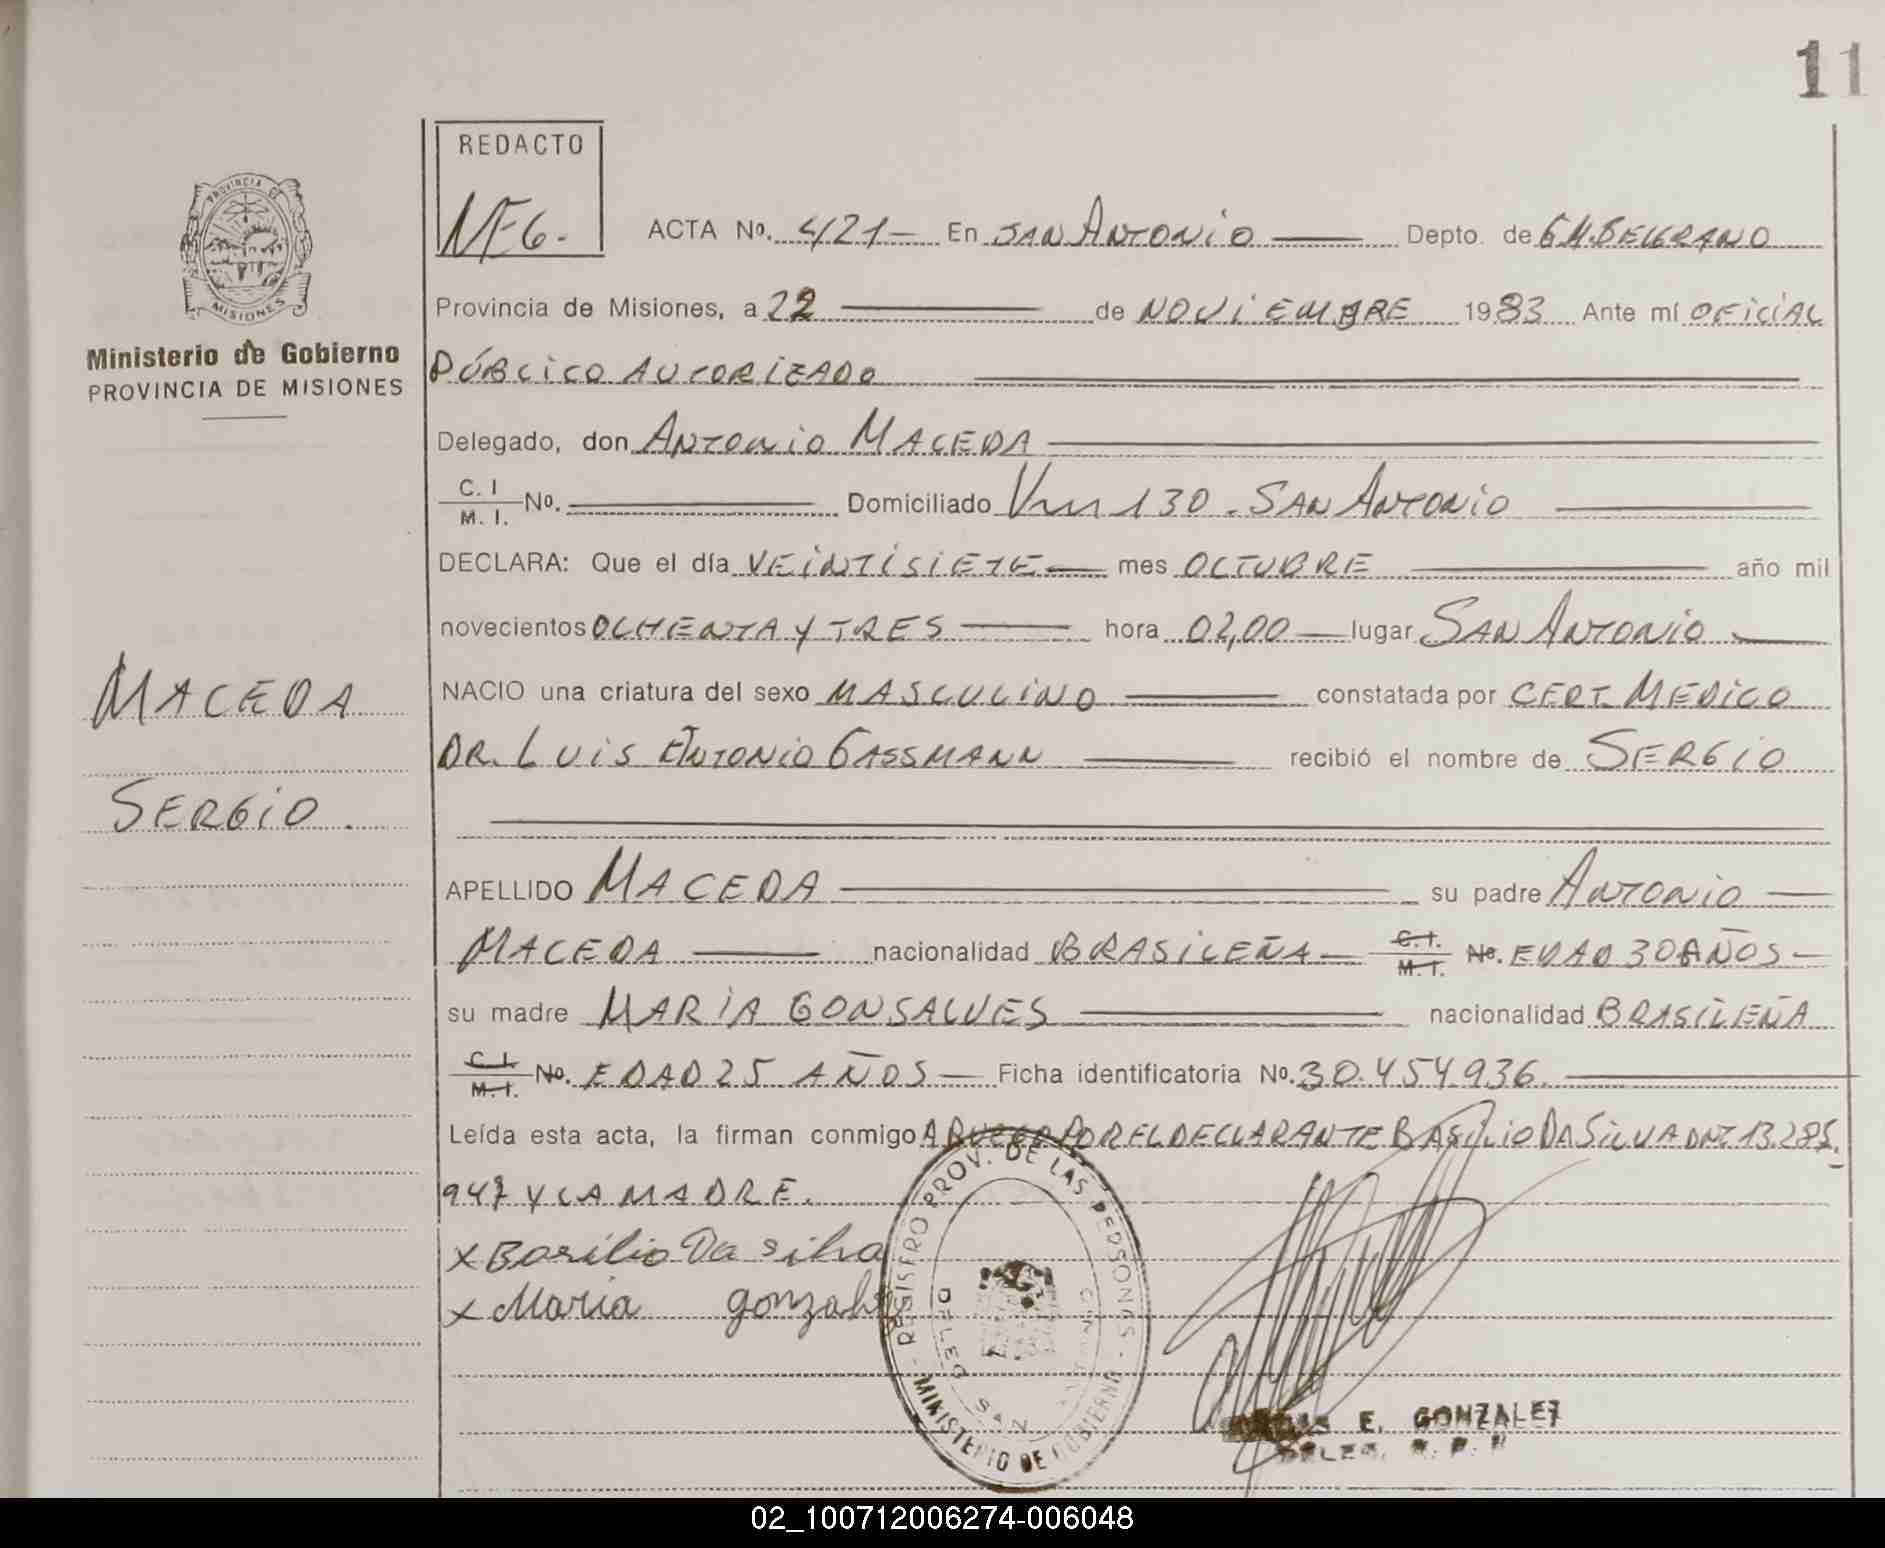 11
REDACTO
NEG.
ACTA No. 421 En SAN ANTONIO Depto. de G.M.BELGRANO
Provincia de Misiones, a 22 de NOVIEMBRE 1983 Ante mí OFICIAL
PÚBLICO AUTORIZADO
Delegado, don ANTONIO MACEDA
C. I
M. I. No. Domiciliado Km 130. SAN ANTONIO
DECLARA: Que el día VEINTISIETE mes OCTUBRE año mil
novecientos OCHENTA Y TRES hora 02,00 lugar SAN ANTONIO
NACIO una criatura del sexo MASCULINO constatada por CERT. MEDICO
DR. LUIS ANTONIO GASSMANN recibió el nombre de SERGIO
APELLIDO MACEDA su padre ANTONIO
MACEDA nacionalidad BRASILEÑA C.I. M.I. No. EDAD 30 AÑOS
su madre MARIA GONSALVES nacionalidad BRASILEÑA
C.I. M.I. No. EDAD 25 AÑOS Ficha identificatoria No. 30.454.936
Leída esta acta, la firman conmigo A RUEGO POR EL DECLARANTE BASILIO DA SILVA DNI. 13.285.
947 Y LA MADRE.
x Basilio Da silva
x Maria gonzal
PROVINCIA DE
MISIONES
Ministerio de Gobierno
PROVINCIA DE MISIONES
MACEDA
SERGIO.
REGISTRO PROV. DE LAS PERSONAS - MINISTERIO DE GOBIERNO
DELEG SAN
E. GONZALEZ
DELEG. R. P. P
02_100712006274-006048